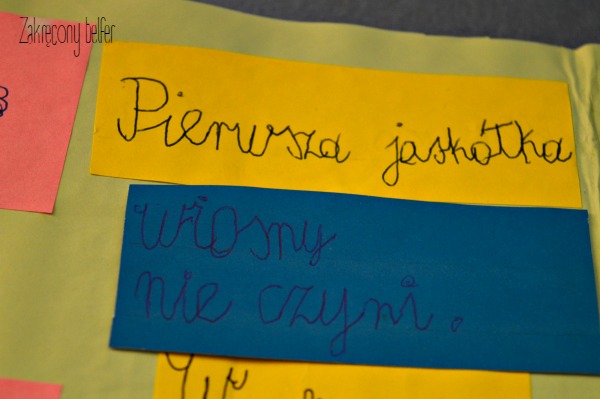 Zakręcony belfer
Pierwsza jaskółka
wiosny
nie czyni.